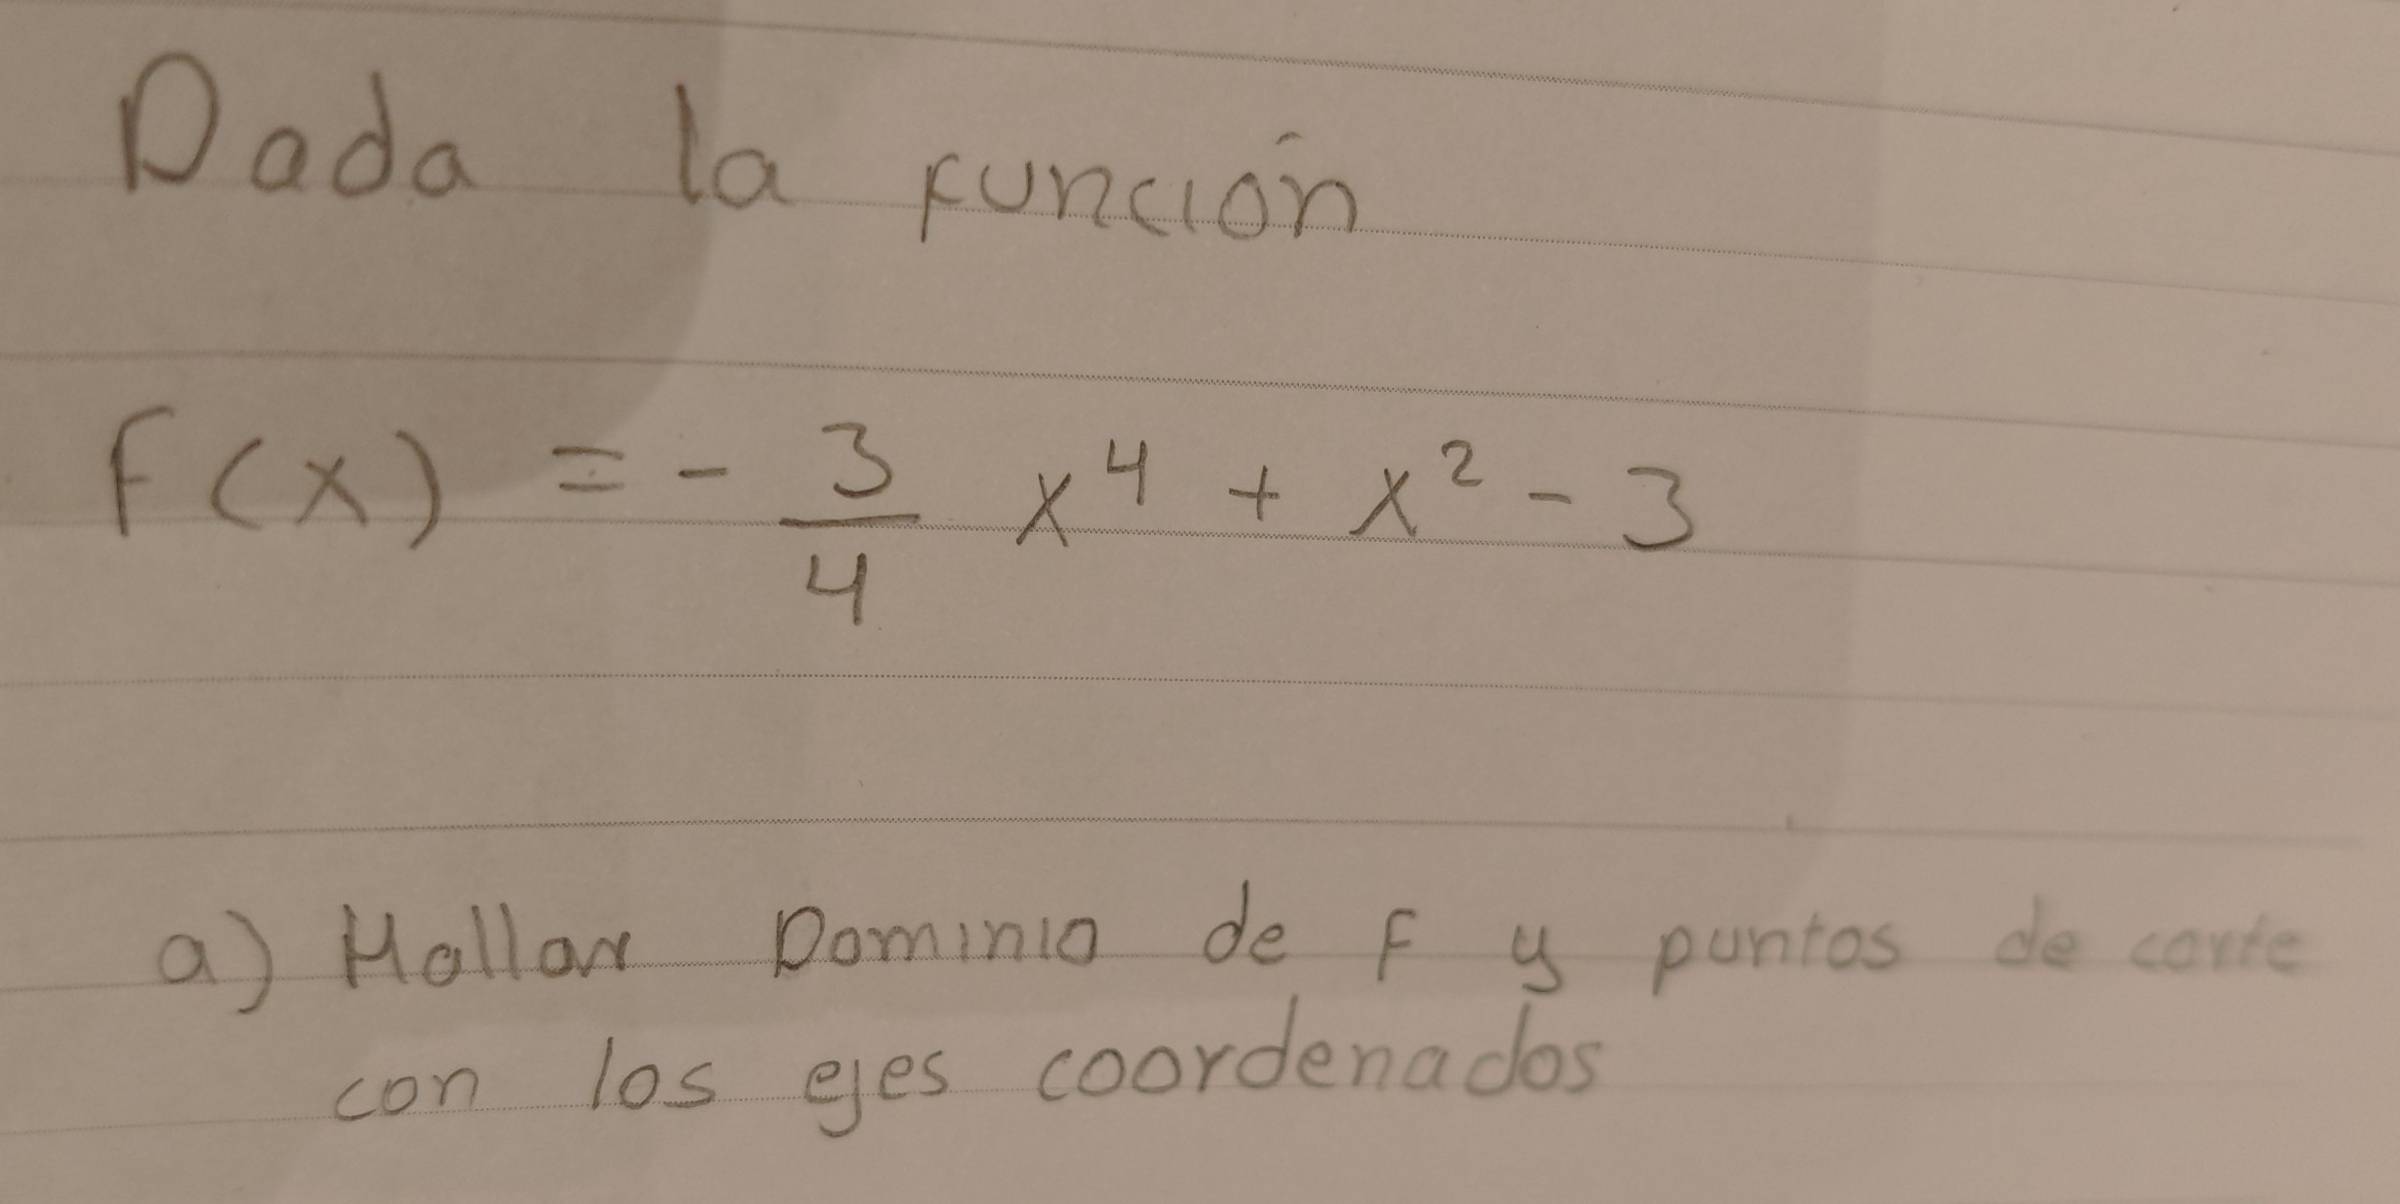 Dada la función
F(x) = - 3/4 x⁴ + x² - 3
a) Hallar Dominio de F y puntos de corte
con los ejes coordenados